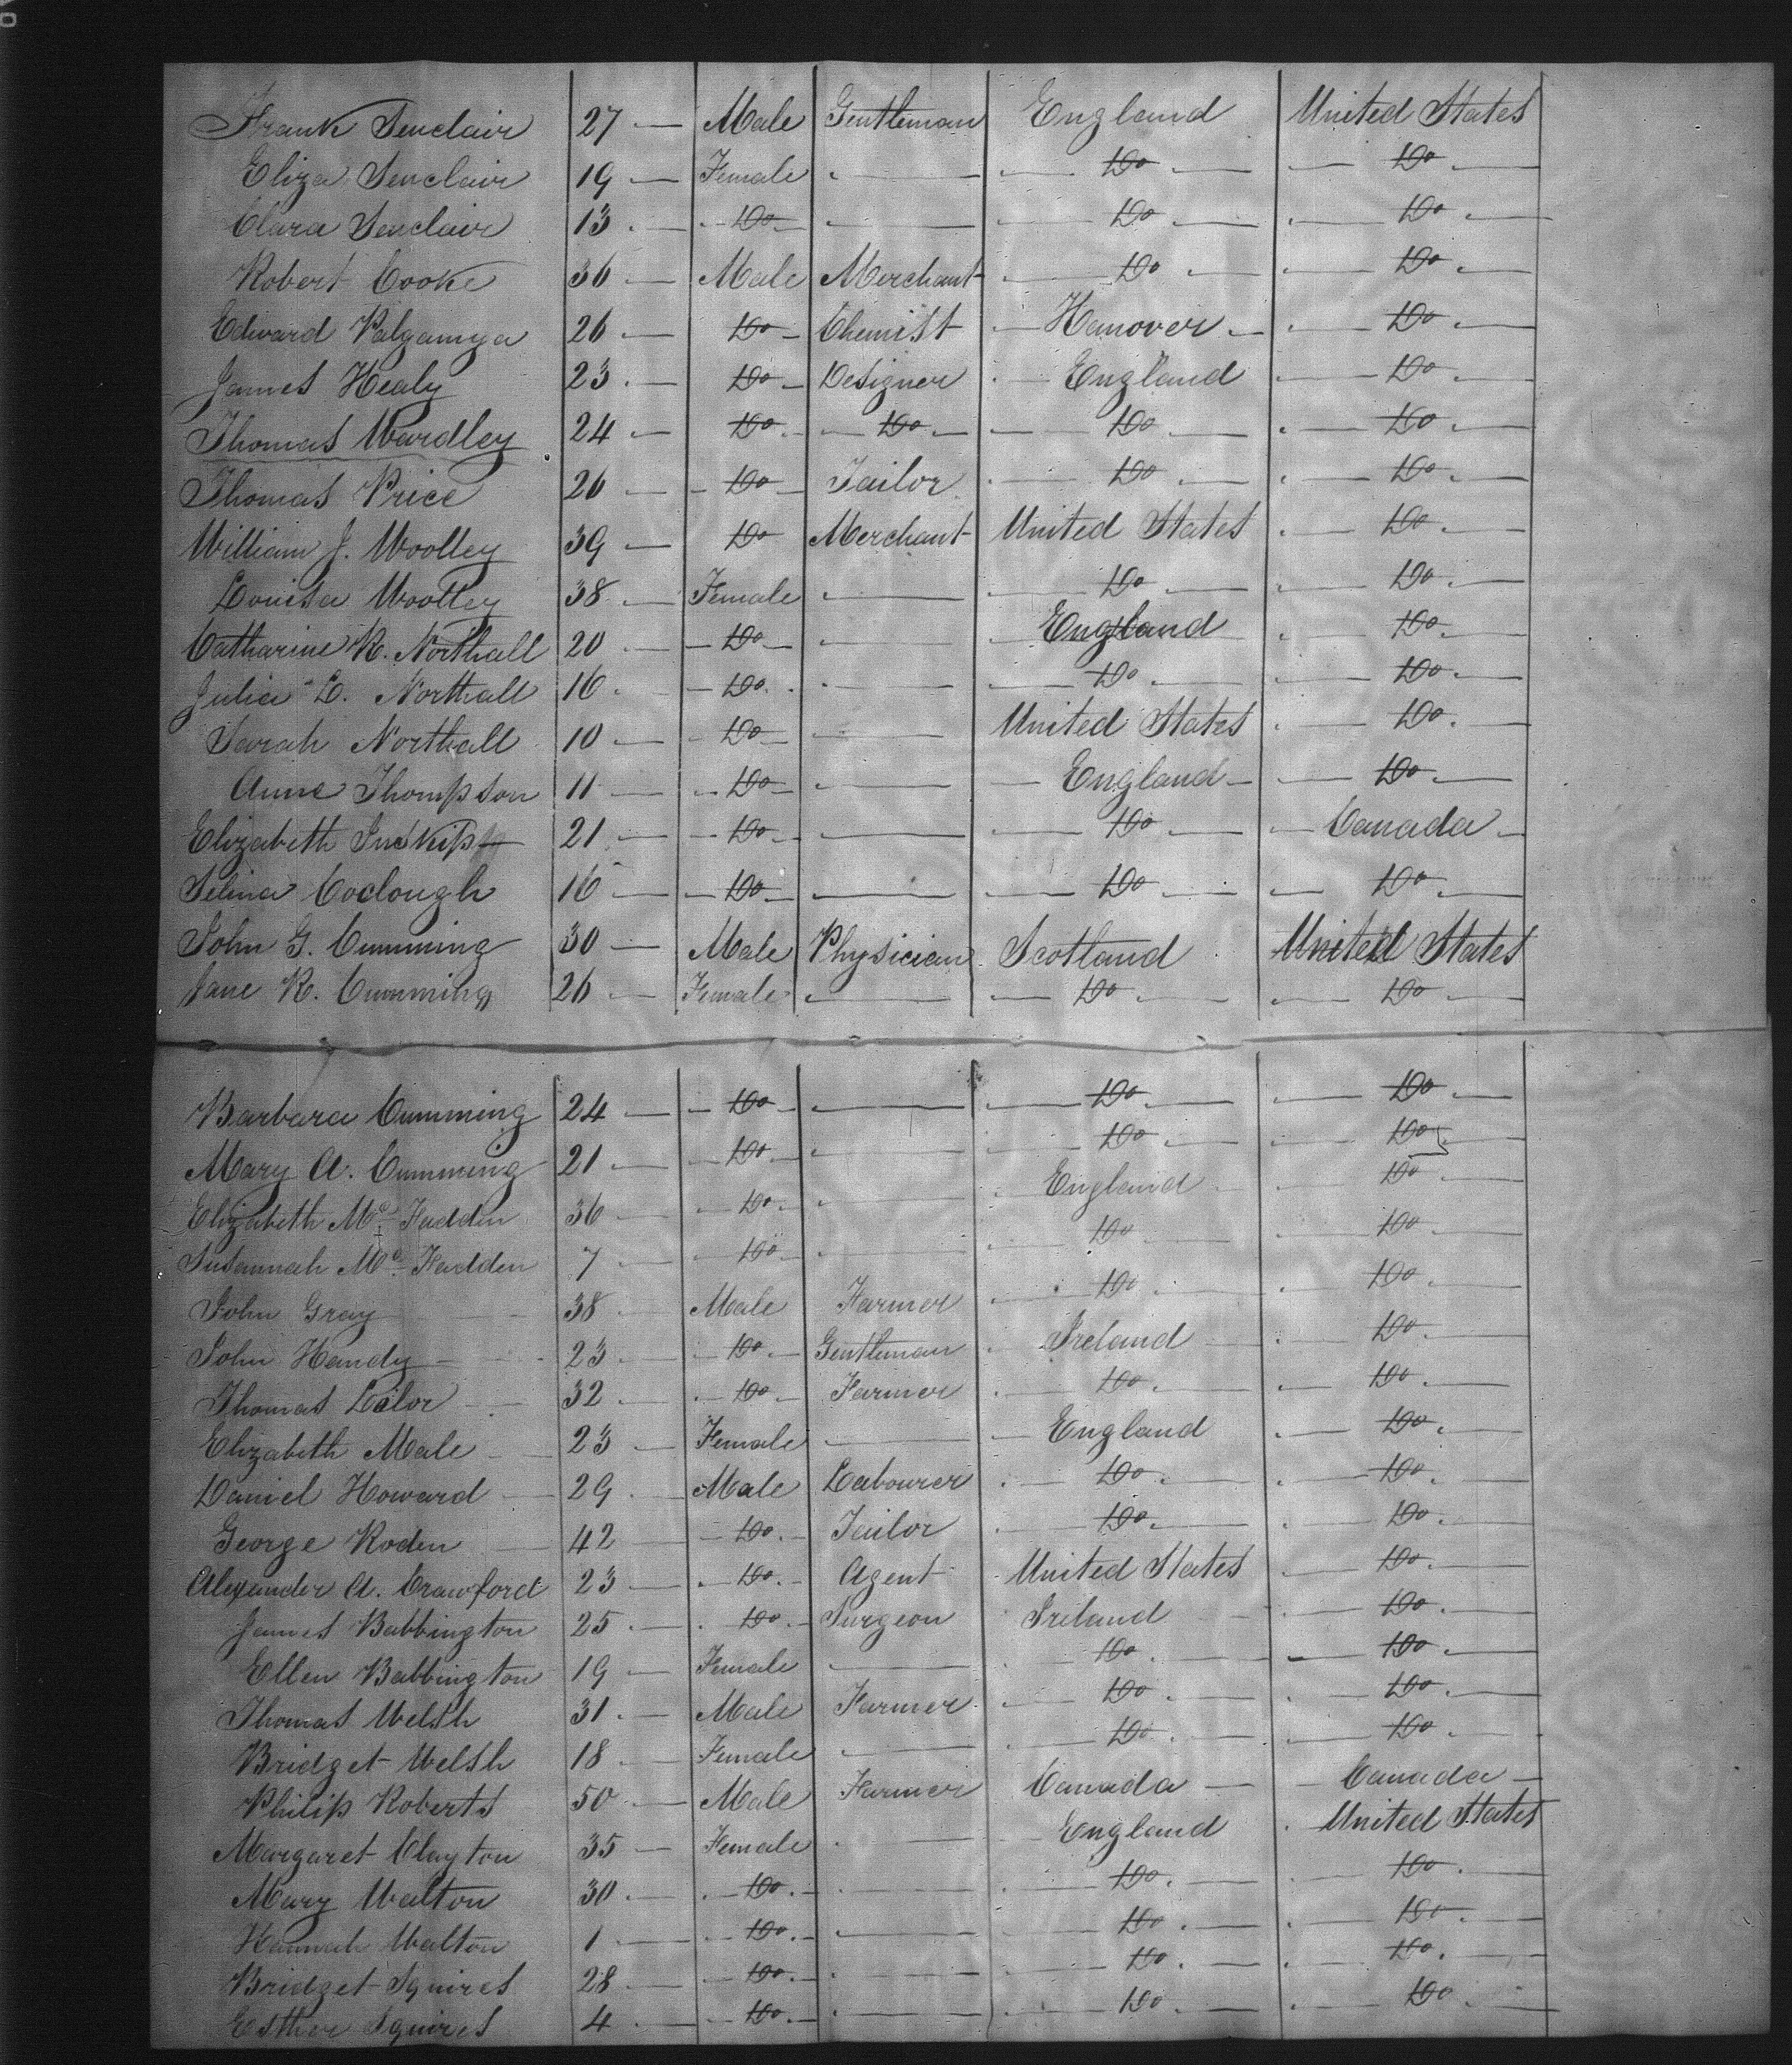 Frank Senclair 27 — Male Gentleman England United States
Eliza Senclair 19 — Female — Do — Do —
Clara Senclair 13 — Do — — Do — Do —
Robert Cooke 36 — Male Merchant — Do — Do —
Edward Valgamya 26 — Do — Chemist — Hanover — Do —
James Healy 23 — Do — Designer — England — Do —
Thomas Wardley 24 — Do — Do — Do — Do —
Thomas Price 26 — Do — Tailor — Do — Do —
William J. Woolley 39 — Do Merchant United States — Do —
Louisa Woolley 38 — Female — Do — Do —
Catharine R. Northall 20 — Do — — England — Do —
Julia L. Northall 16 — Do — — Do — Do —
Sarah Northall 10 — Do — — United States — Do —
Anne Thompson 11 — Do — — England — Do —
Elizabeth Inskip 21 — Do — — Do — Canada —
Selina Coclough 16 — Do — — Do — Do —
John G. Cumming 30 — Male Physician Scotland United States
Jane R. Cumming 26 — Female — Do — Do —
Barbara Cumming 24 — Do — — Do — Do —
Mary A. Cumming 21 — Do — — Do — Do —
Elizabeth Mc Fadden 36 — Do — — England — Do —
Susannah Mc Fadden 7 — Do — — Do — Do —
John Gray 38 — Male Farmer — Do — Do —
John Handy — 23 — Do — Gentleman Ireland — Do —
Thomas Lalor — 32 — Do — Farmer — Do — Do —
Elizabeth Male — 23 — Female — England — Do —
Daniel Howard — 29 — Male Labourer — Do — Do —
George Roden — 42 — Do — Tailor — Do — Do —
Alexander A. Crawford 23 — Do — Agent United States — Do —
James Babbington 25 — Do — Surgeon Ireland — Do —
Ellen Babbington 19 — Female — Do — Do —
Thomas Welsh 31 — Male Farmer — Do — Do —
Bridget Welsh 18 — Female — Do — Do —
Philip Roberts 50 — Male Farmer Canada — Canada —
Margaret Clayton 35 — Female — England United States
Mary Walton 30 — Do — — Do — Do —
Hannah Walton 1 — Do — — Do — Do —
Bridget Squires 28 — Do — — Do — Do —
Esther Squires 4 — Do — — Do — Do —